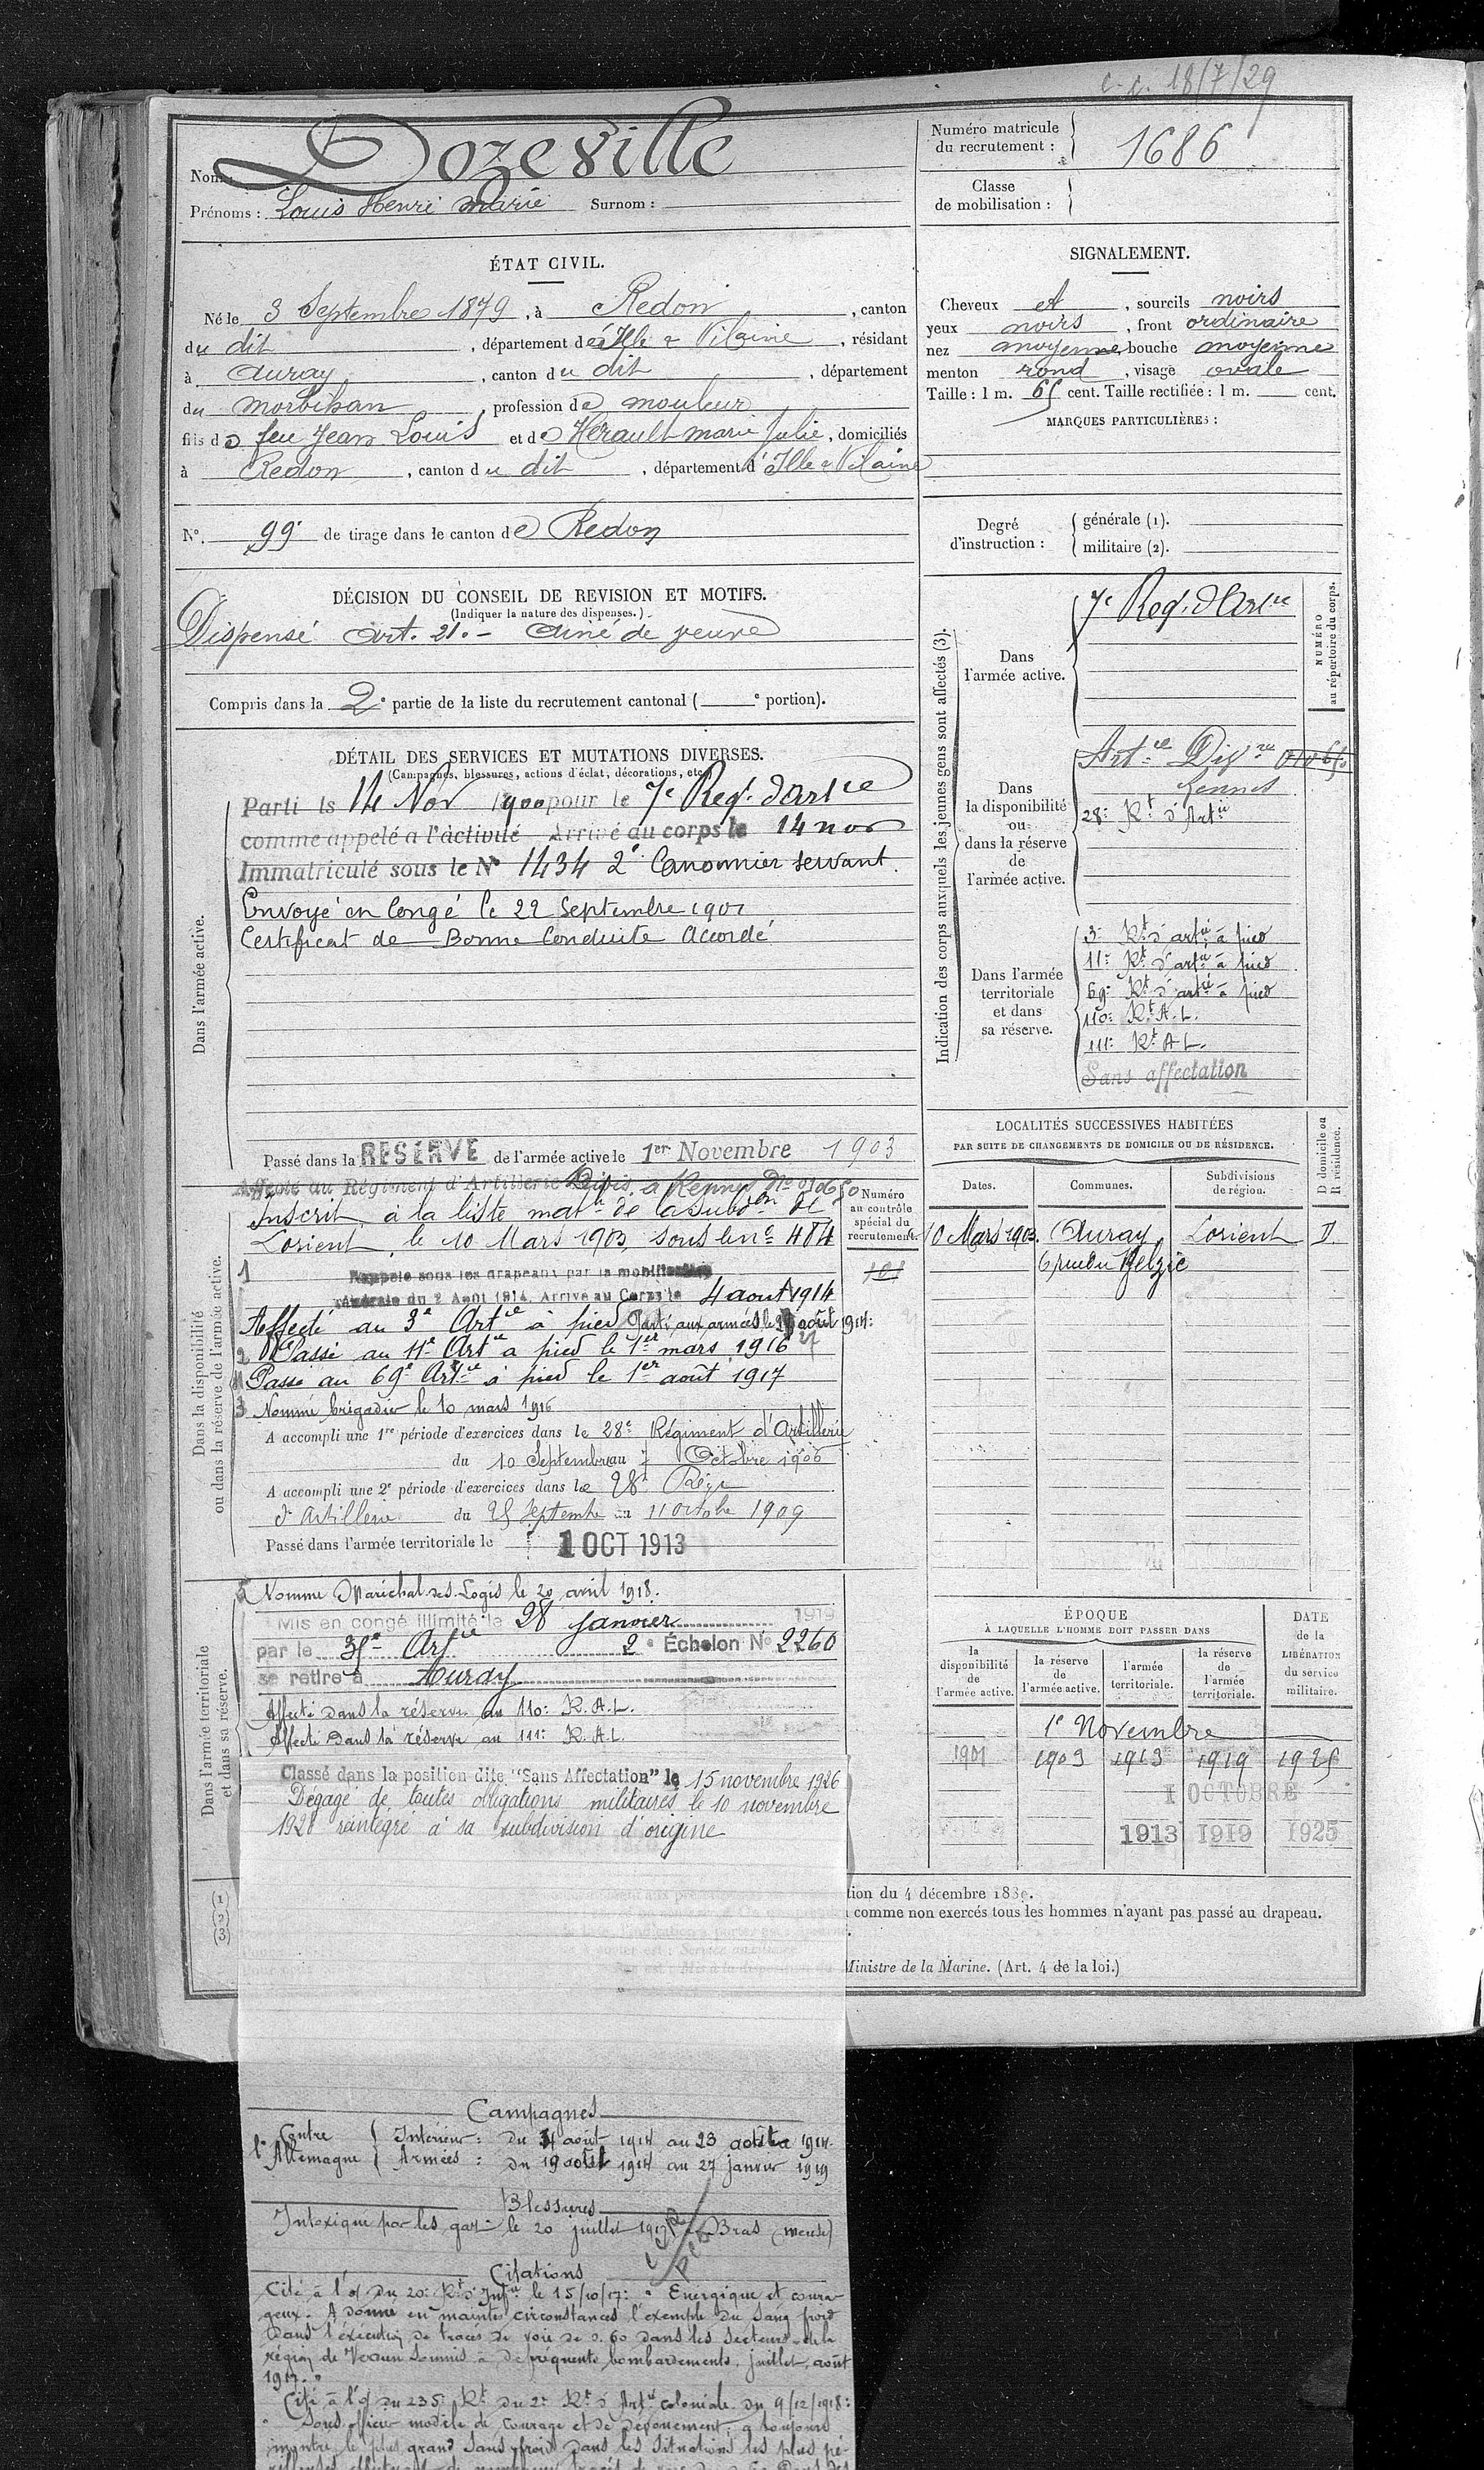 c.c. 18/7/29
Nom : Dozeville
Prénoms : Louis Henri Marie Surnom :
Numéro matricule du recrutement : 1686
Classe de mobilisation :
ÉTAT CIVIL.
Né le 3 Septembre 1879, à Redon, canton
du dit, département d'Ille & Vilaine, résidant
à Auray, canton du dit, département
du Morbihan, profession de mouleur
fils de feu Jean Louis et de Hérault Marie Julie, domiciliés
à Redon, canton du dit, département d'Ille & Vilaine
N° 99 de tirage dans le canton de Redon
SIGNALEMENT.
Cheveux et, sourcils noirs
yeux noirs, front ordinaire
nez moyenne, bouche moyenne
menton rond, visage ovale
Taille : 1 m. 65 cent. Taille rectifiée : 1 m. cent.
MARQUES PARTICULIÈRES :
Degré d'instruction : générale (1).
militaire (2).
DÉCISION DU CONSEIL DE REVISION ET MOTIFS.
(Indiquer la nature des dispenses.)
Dispensé Art. 21. - Ainé de veuve
Compris dans la 2e partie de la liste du recrutement cantonal ( e portion).
DÉTAIL DES SERVICES ET MUTATIONS DIVERSES.
(Campagnes, blessures, actions d'éclat, décorations, etc.)
Dans l'armée active.
Parti le 14 Nov 1900 pour le 7e Reg. d'Artie
comme appelé a l'activité Arrivé au corps le 14 nov
Immatriculé sous le N° 1434 2e Canonnier servant.
Envoyé en Congé le 22 Septembre 1901
Certificat de Bonne Conduite Accordé
Passé dans la RÉSERVE de l'armée active le 1er Novembre 1903
Dans la disponibilité ou dans la réserve de l'armée active.
Affecté au Régiment d'Artillerie Divis. à Rennes No 01060
Inscrit à la liste matle de la subdon de
Lorient, le 10 Mars 1903, sous le no 484
Numéro au contrôle spécial du recrutement.
101
1 Rappelé sous les drapeaux par la mobilisation
générale du 2 Août 1914. Arrivé au Corps le 4 aout 1914
Affecté au 3e Artie à pied Parti aux armées le août 1914:
2 Passé au 11e Artie à pied le 1er mars 1916
4 Passé au 69e Artie à pied le 1er août 1917
3 Nommé brigadier le 10 mars 1916
A accompli une 1re période d'exercices dans le 28e Régiment d'Artillerie
du 10 Septembre au 7 Octobre 1906
A accompli une 2e période d'exercices dans le 28e Régt
d'Artillerie du 25 Septembre au 11 Octobre 1909
Passé dans l'armée territoriale le 1 OCT 1913
Dans l'armée territoriale et dans sa réserve.
5 Nommé Maréchal-des-Logis le 20 avril 1918.
Mis en congé illimité le 28 janvier 1919
par le 35e Artie 2e Échelon N° 2260
se retire à Auray
Affecté dans la réserve au 110e R.A.L.
Affecté dans la réserve au 111e R.A.L.
Classé dans la position dite "Sans Affectation" le 15 novembre 1926
Dégagé de toutes obligations militaires le 10 novembre
1928 réintégré à sa subdivision d'origine
Indication des corps auxquels les jeunes gens sont affectés (3).
NUMÉRO au répertoire du corps.
Dans l'armée active.
7e Reg. d'Artie
Dans la disponibilité ou dans la réserve de l'armée active.
Artie Divre
Rennes
28e Rt d'Artie
Dans l'armée territoriale et dans sa réserve.
3e Rt d'artie à pied
11e Rt d'artie à pied
69e Rt d'artie à pied
110e Rt A.L.
111e Rt A.L.
Sans affectation
LOCALITÉS SUCCESSIVES HABITÉES
PAR SUITE DE CHANGEMENTS DE DOMICILE OU DE RÉSIDENCE.
D domicile ou R résidence.
Dates. Communes. Subdivisions de région.
10 Mars 1903. Auray, Lorient D.
6 rue du Belzic
ÉPOQUE
À LAQUELLE L'HOMME DOIT PASSER DANS
DATE de la LIBÉRATION du service militaire.
la disponibilité de l'armée active. la réserve de l'armée active. l'armée territoriale. la réserve de l'armée territoriale.
1er Novembre
1901 1903 1913 1919 1925
1 OCTOBRE
1913 1919 1925
(1)
(2)
(3)
tion du 4 décembre 1889.
comme non exercés tous les hommes n'ayant pas passé au drapeau.
Ministre de la Marine. (Art. 4 de la loi.)
Campagnes
Contre l'Allemagne
Intérieur : du 4 août 1914 au 23 1914.
Armées : du 1914 au 27 janvier 1919
Blessures
Intoxiqué par les gaz le 20 juillet 1917 à Bras (meuse)
Citations
Cité à l'o/ du 20e Rt d'Infie le 15/10/17: " Energique et coura-
geux. A donné en maintes circonstances l'exemple du sang froid
dans l'exécution de tracés de voie de 0.60 dans les secteurs de la
région de Verdun soumis à de fréquents bombardements. juillet, août
1917. "
Cité à l'o/ du 235e Rt du 2e Rt d'Artie coloniale du 9/12/1918:
" Sous officier modèle de courage et de dévouement; a toujours
montré le plus grand sang froid dans les situations les plus pé-